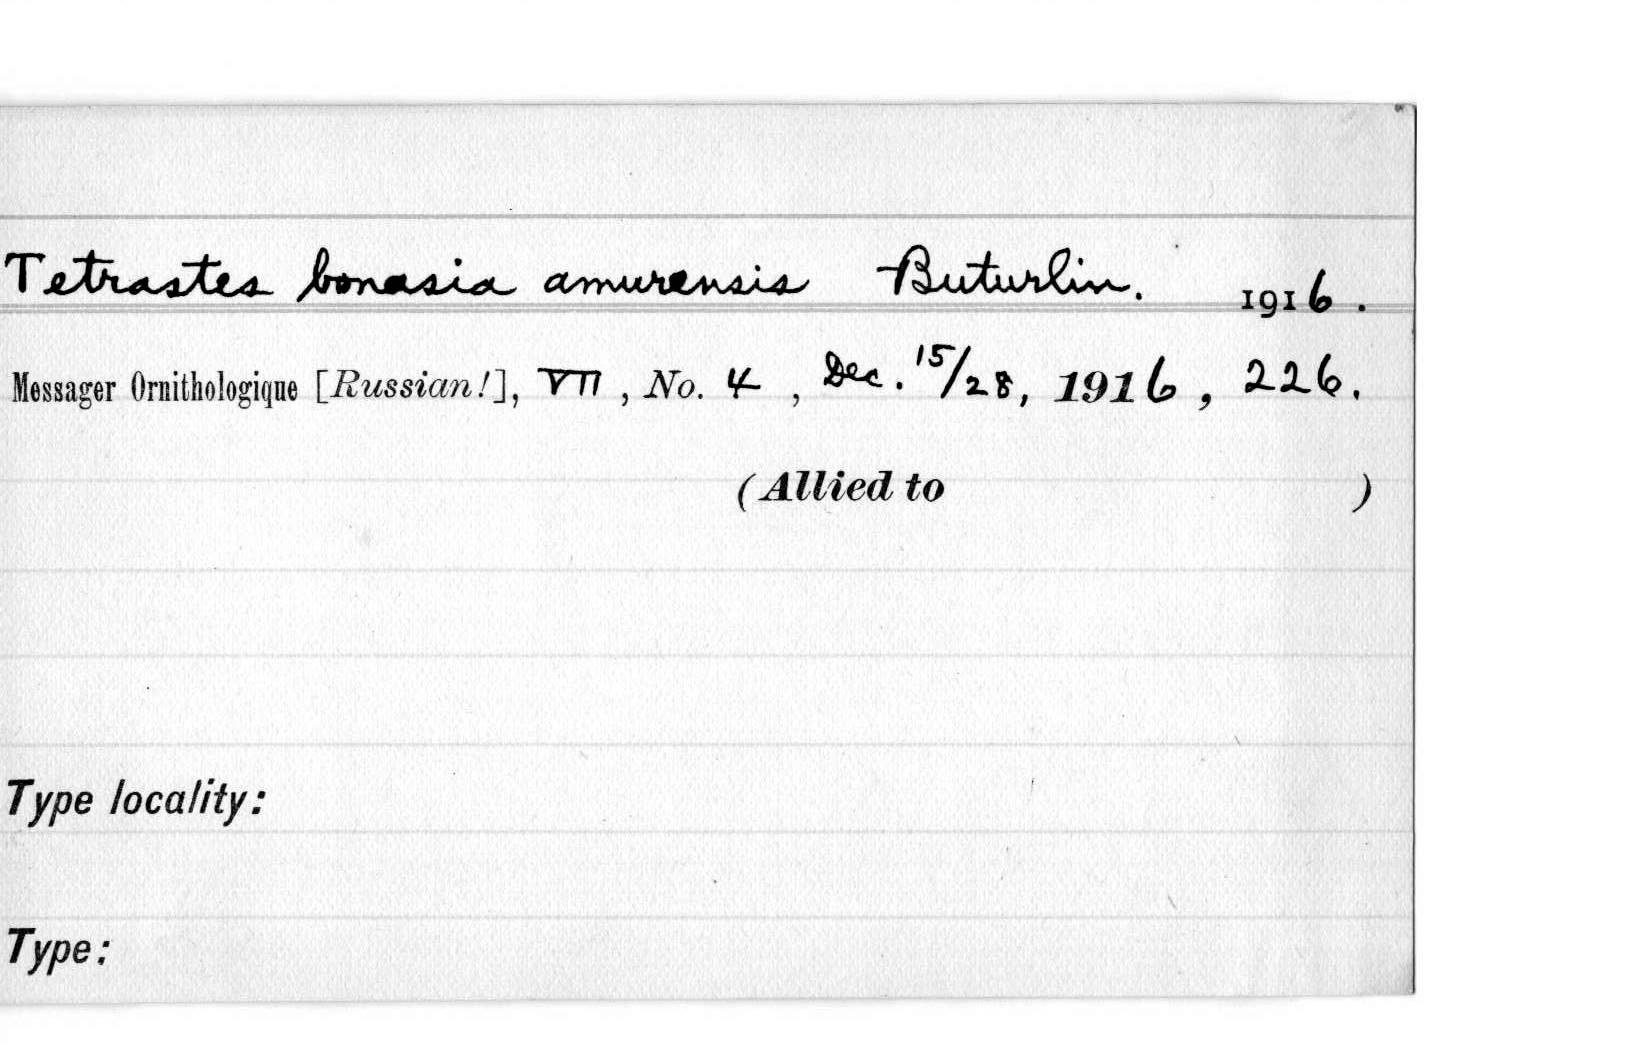 Tetrastes bonasia amurensis Buturlin. 1916.
Messager Ornithologique [Russian!], VII, No. 4, Dec. 15/28, 1916, 226.
(Allied to )
Type locality:
Type: